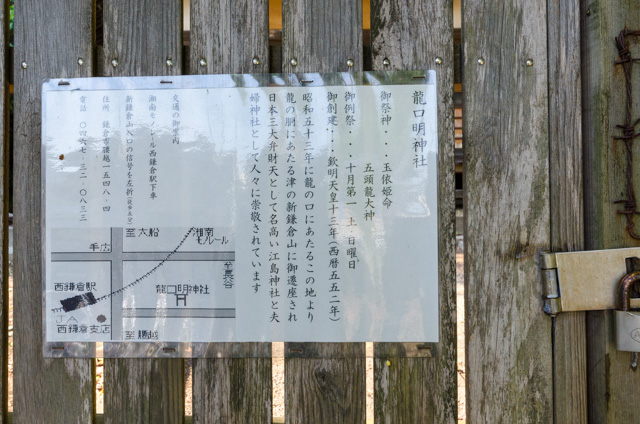 龍口明神社
御祭神・・・玉依姫命
五頭龍大神
御例祭・・・十月第一 土・日曜日
御創建・・・欽明天皇十三年(西暦五五二年)
昭和五十三年に龍の口にあたるこの地より
龍の胴にあたる津の新鎌倉山に御遷座され
日本三大弁財天として名高い江島神社と夫
婦神社として人々に崇敬されています
交通の御案内
湘南モノレール西鎌倉駅下車
新鎌倉山入口の信号を左折(徒歩五分)
住所 鎌倉市腰越一五四八・四
電話 〇四六七・三二・〇八三三
至大船
湘南
モノレール
手広
至長谷
西鎌倉駅
龍口明神社
JA
西鎌倉支店
至腰越